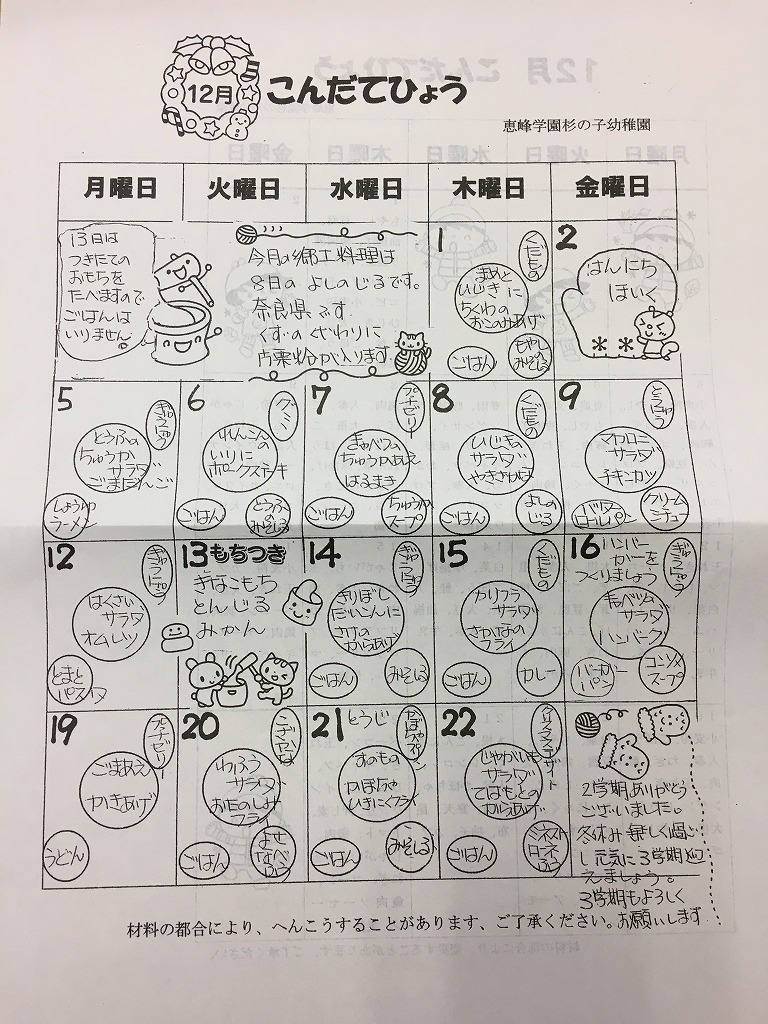 12月
こんだてひょう
恵峰学園杉の子幼稚園
月曜日 火曜日 水曜日 木曜日 金曜日
13日は
つきたての
おもちを
たべますので
ごはんは
いりません。
今月の郷土料理は
8日の よしのじるです。
奈良県です。
くずの くだわりに
片栗粉が入ります。
1
くだもの
まめと
ひじきに
ちくわの
おこのみあげ
ごはん
もやし
みそしる
2
はんにち
ほいく
5
ぎゅうにゅう
とうふの
ちゅうか
サラダ
ごまだんご
しょうゆ
ラーメン
6
グミ
れんこんの
いりに
ポークステーキ
ごはん
とうふ
みそしる
7
プチゼリー
きゃべつの
ちゅうかあえ
はるまき
ごはん
ちゅうか
スープ
8
くだもの
ひじきの
サラダ
やきざかな
ごはん
よしの
じる
9
とうにゅう
マカロニ
サラダ
チキンカツ
バター
ロールパン
クリーム
シチュー
12
ぎゅうにゅう
はくさい
サラダ
オムレツ
とまと
パスタ
13 もちつき
きなこもち
とんじる
みかん
14
ぎゅうにゅう
きりぼし
だいこんに
さけの
からあげ
ごはん
みそしる
15
くだもの
カリフラ
サラダ
さかなの
フライ
ごはん
カレー
16 ハンバー
ガーを
つくりましょう
ぎゅうにゅう
キャベツ
サラダ
ハンバーグ
バーガー
パン
コンソメ
スープ
19
プチゼリー
ごまあえ
かきあげ
うどん
20
こざかな
わふう
サラダ
おたのしみ
フライ
ごはん
よせ
なべ
ふう
21 とうじ
かぼちゃプリン
すのもの
かぼちゃ
ひきにくフライ
ごはん
みそしる
22
クリスマスデザート
じゃがいも
サラダ
てばもとの
からあげ
ごはん
ミネスト
ローネ
ふう
2学期ありがとう
ございました。
冬休み 楽しく過ご
し 元気に 3学期 迎
えましょう。
3学期もよろしく
お願いします
材料の都合により、へんこうすることがあります、ご了承ください。